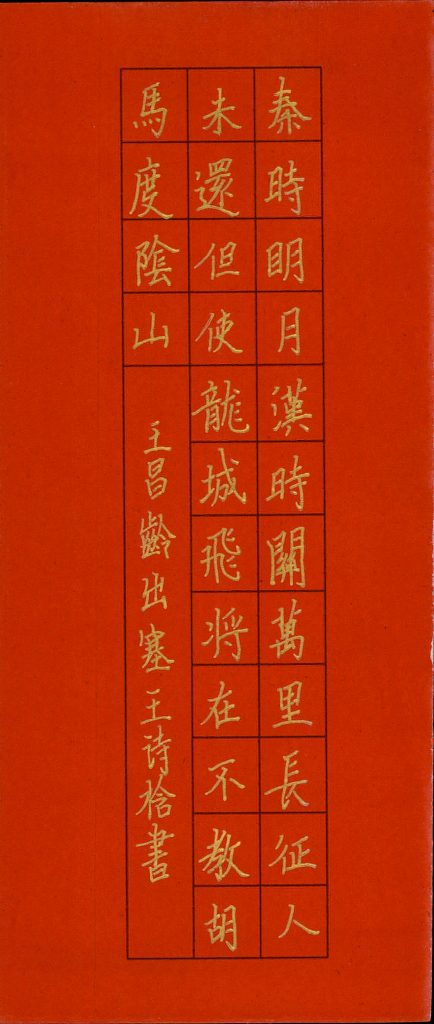 秦時明月漢時關萬里長征人
未還但使龍城飛将在不教胡
馬度陰山
王昌齡出塞王诗拾書